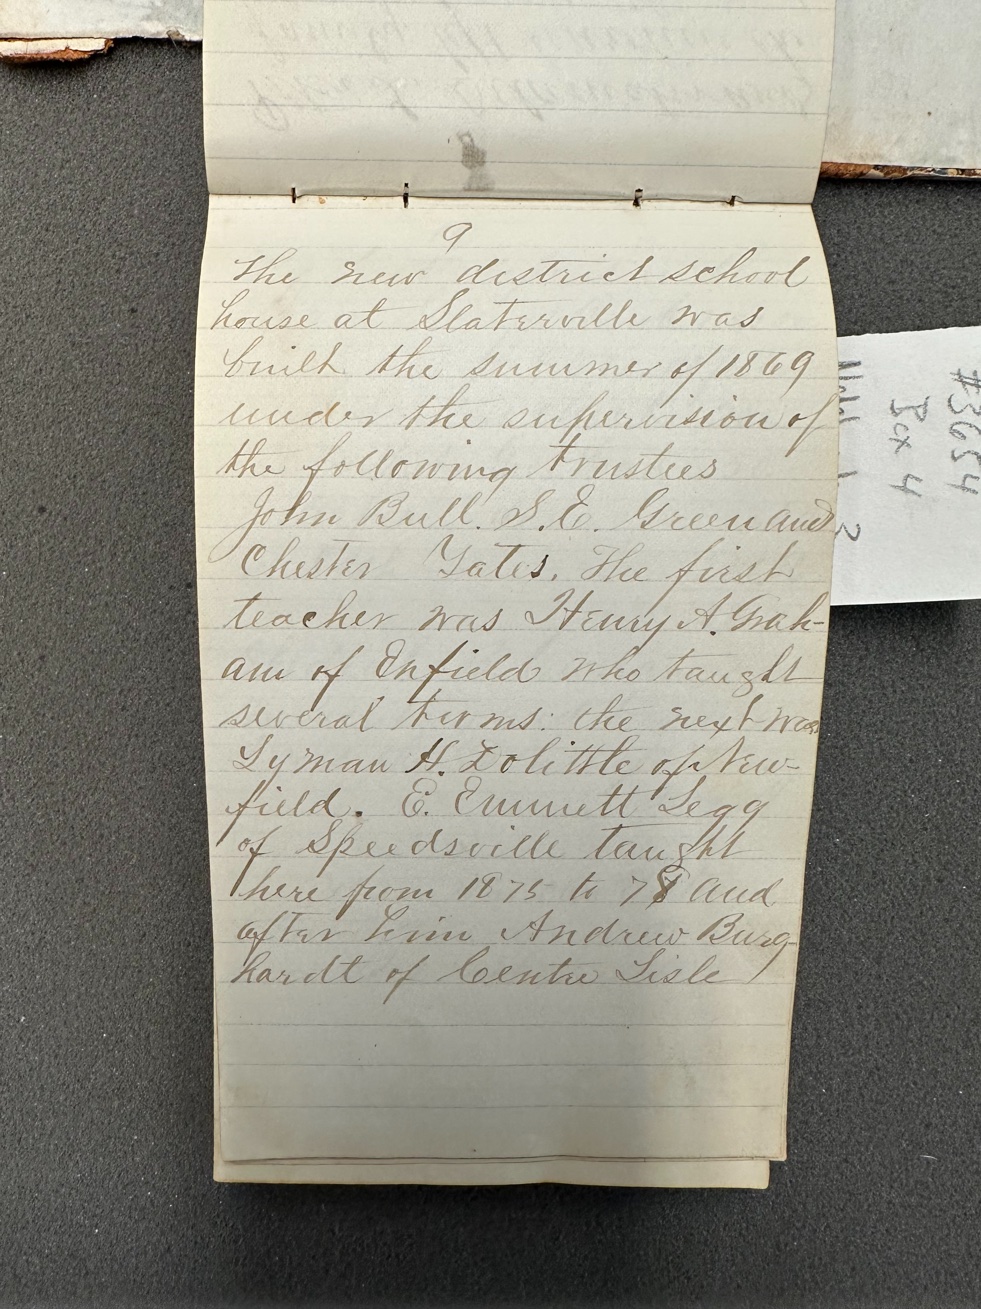 9
The new district school
house at Slaterville was
built the summer of 1869
under the supervision of
the following trustees
John Bull. S. E. Green and
Chester Yates. The first
teacher was Henry A. Grah-
am of Enfield who taught
several terms: the next was
Lyman H. Dolittle of New-
field. E. Emmett Legg
of Speedsville taught
here from 1875 to 78 and
after him Andrew Burg-
hardt of Centre Lisle
#3654
Box 4